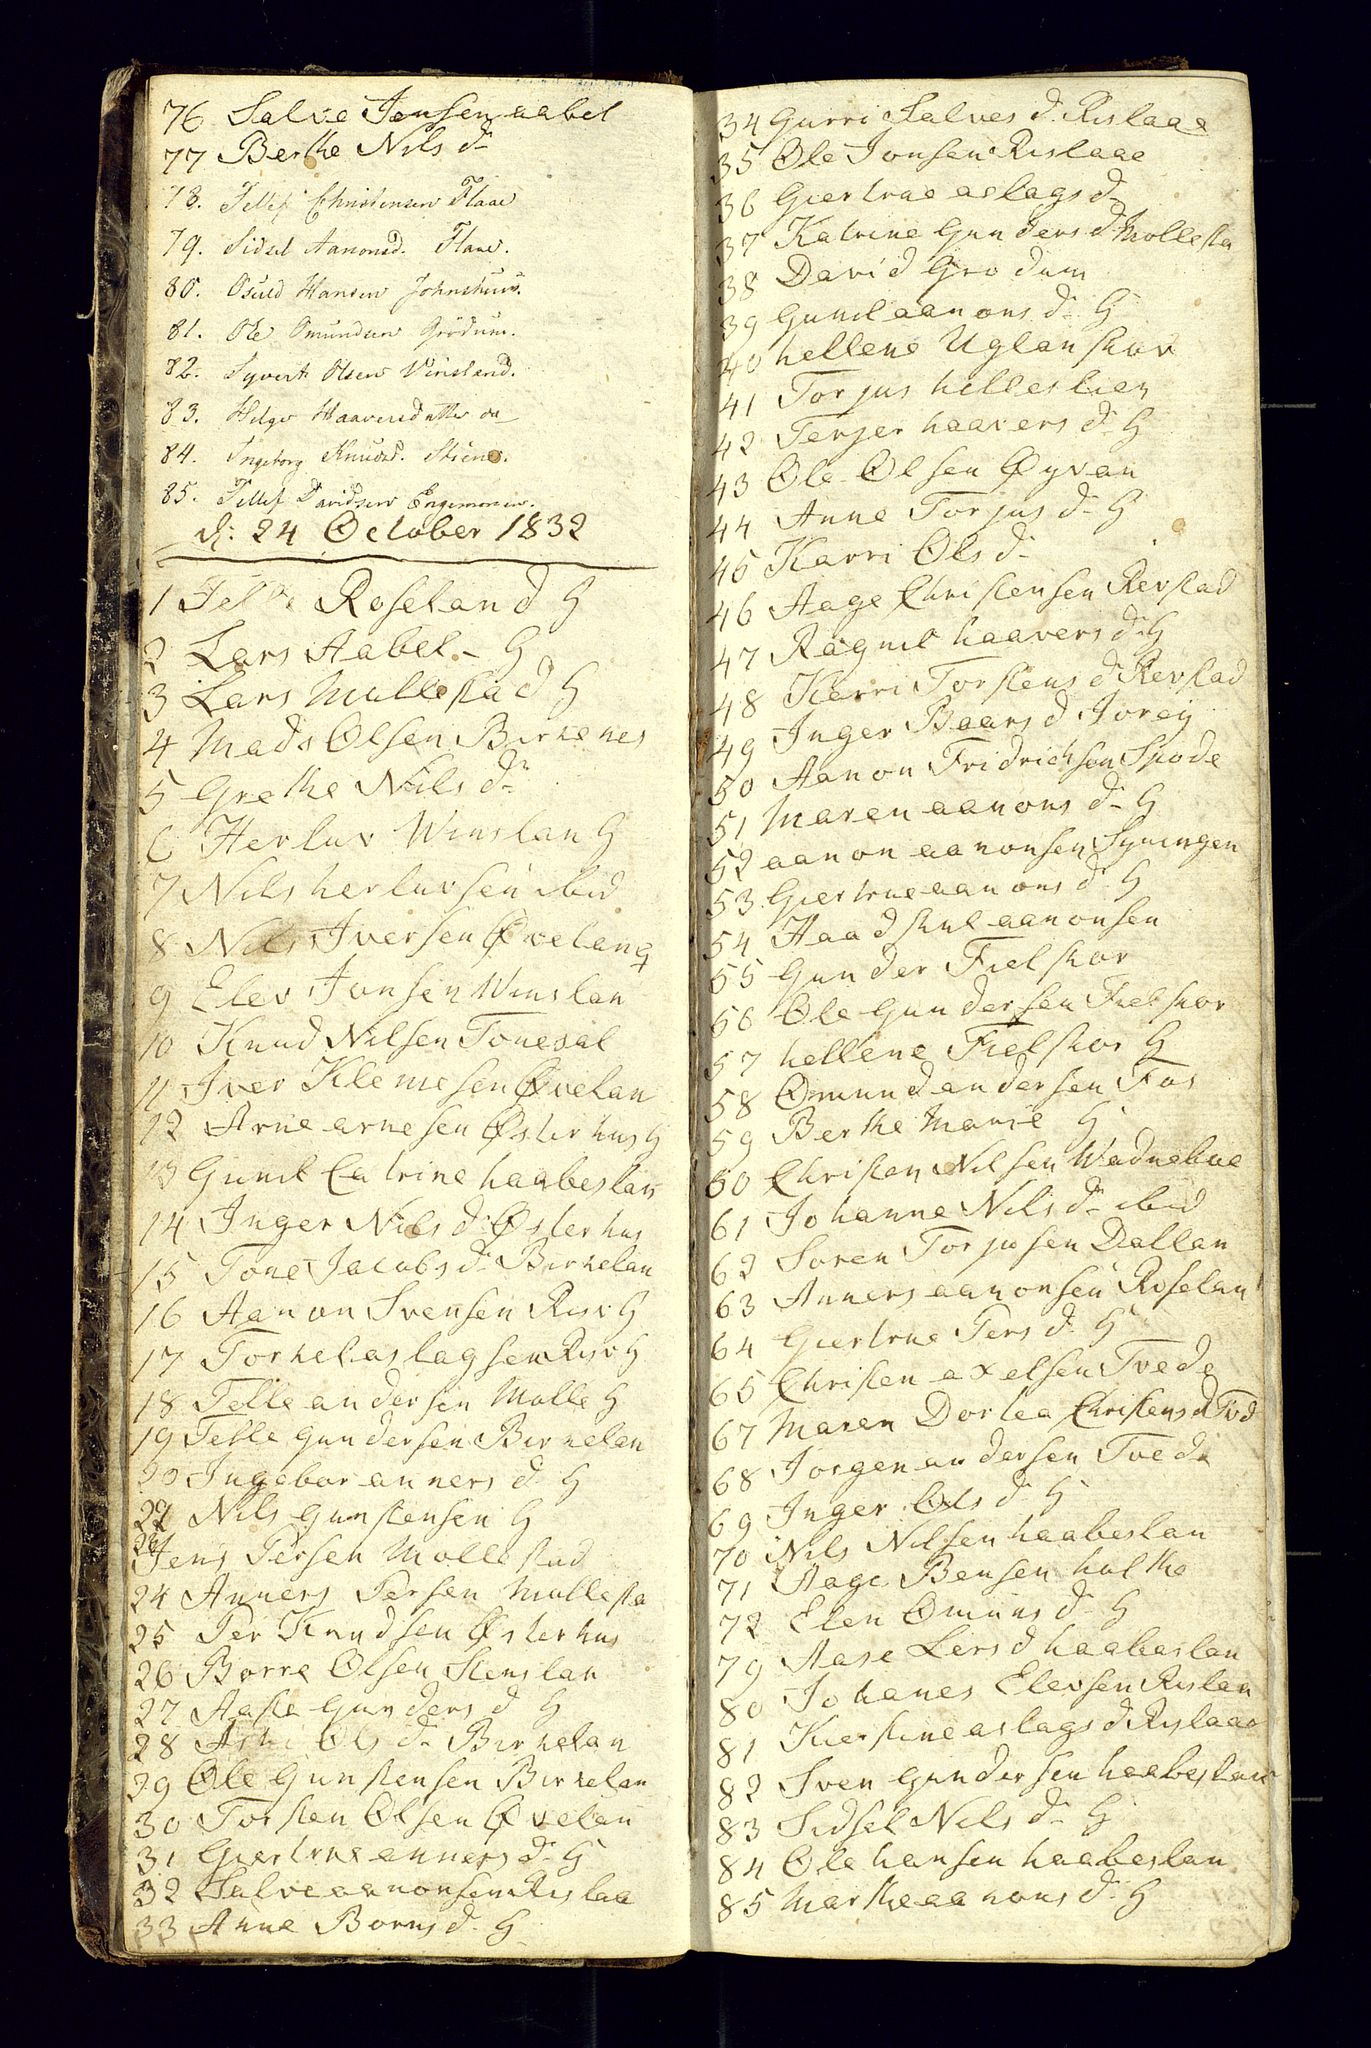 76 Salve Jensen aabel
77 Berthe Nils d
78. Tellef Christensen Flaae
79. Sidsel Aanonsd. Flaae.
80. Osuld Hansen Johnshuus.
81. Ole Omundsen Grödum.
82. Syvert Olsen Vinsland.
83. Helge Haaversdatter
84. Ingeborg Knudsd.
85. Tellef Davidsen Engemoen.
d: 24 October 1832
1 Telle Roseland H
2 Lars Aabel - H
3 Lars Mollestad H
4 Mads Olsen Birkenes
5 Grethe Nils d
6 Herluv Winslan H
7 Nils herluvsen ibid
8 Nils Iversen Øvelan H
9 Elev Jonsen Winslan
10 Knud Nilsen Tonesal
11 Iver Klemesen Øvelan
12 Arne arnesen Østerhus H
13 Gunil Catrine haabeslan
14 Inger Nils d Østerhus
15 Tone Jacobs d Birkelan
16 Aanon Svensen Risv H
17 Torkel aslagsen Risv H
18 Telle andersen Molle H
19 Telle Gundersen Birkelan
20 Ingebor anners d H
22 Nils Gunstensen H
Jens Persen Mollestad
24 Anners Persen Mollesta
25 Per Knudsen Østerhus
26 Borre Olsen Stenslan
27 Aaste Gunders d H
28 Ols d Birkelan
29 Ole Gunstensen Birkelan
30 Torsten Olsen Øvelan
31 Giertrue anners d H
32 Salve aanonsen Rislaa
33 Anne Borns d H
34 Gurri Salves d Rislaae
35 Ole Jonsen Rislaae
36 Giertrue aslags d
37 Katrine Gunders d Mollesta
38 David Grodum
39 Gunil aanons d H
40 hellene Uglanskov
41 Torjus helleslien
42 Terjer haavers d H
43 Ole Olsen Øyvan
44 Anne Torjus d H
45 Karri Ols d
46 Aage Christensen Revstad
47 Ragnil haavers d H
48 Karri Torstens d Revstad
49 Inger Baars d Iorey
50 Aanon Fridrichsen Spode
51 Maren aanons d H
52 aanon aanonsen Syningen
53 Giertrue aanons d H
54 Haadskul aanonsen
55 Gunder Fielskor
56 Ole Gundersen Fielskor
57 hellene Fielskor H
58 Omund andersen Fos
59 Berthe Marie H
60 Christen Nilsen Wadnebue
61 Johanne Nils d ibid
62 Soren Torjusen Dallan
63 Anners aanonsen Roselan
64 Giertrue Pers d H
65 Christen axelsen Tvede
67 Maren Dortea Christens d Tvd
68 Jorgen andersen Tvede
69 Inger Ols d H
70 Nils Nilsen haabeslan
71 Aage Bensen hulthe
72 Elen Omuns d H
79 Aase Lars d haabeslan
80 Johanes Elevsen Rislaa
81 Kierstine aslags d Rislaae
82 Sven Gundersen haabeslan
83 Sidsel Nils d H
84 Ole hansen haabeslan
85 Marthe aanons d H